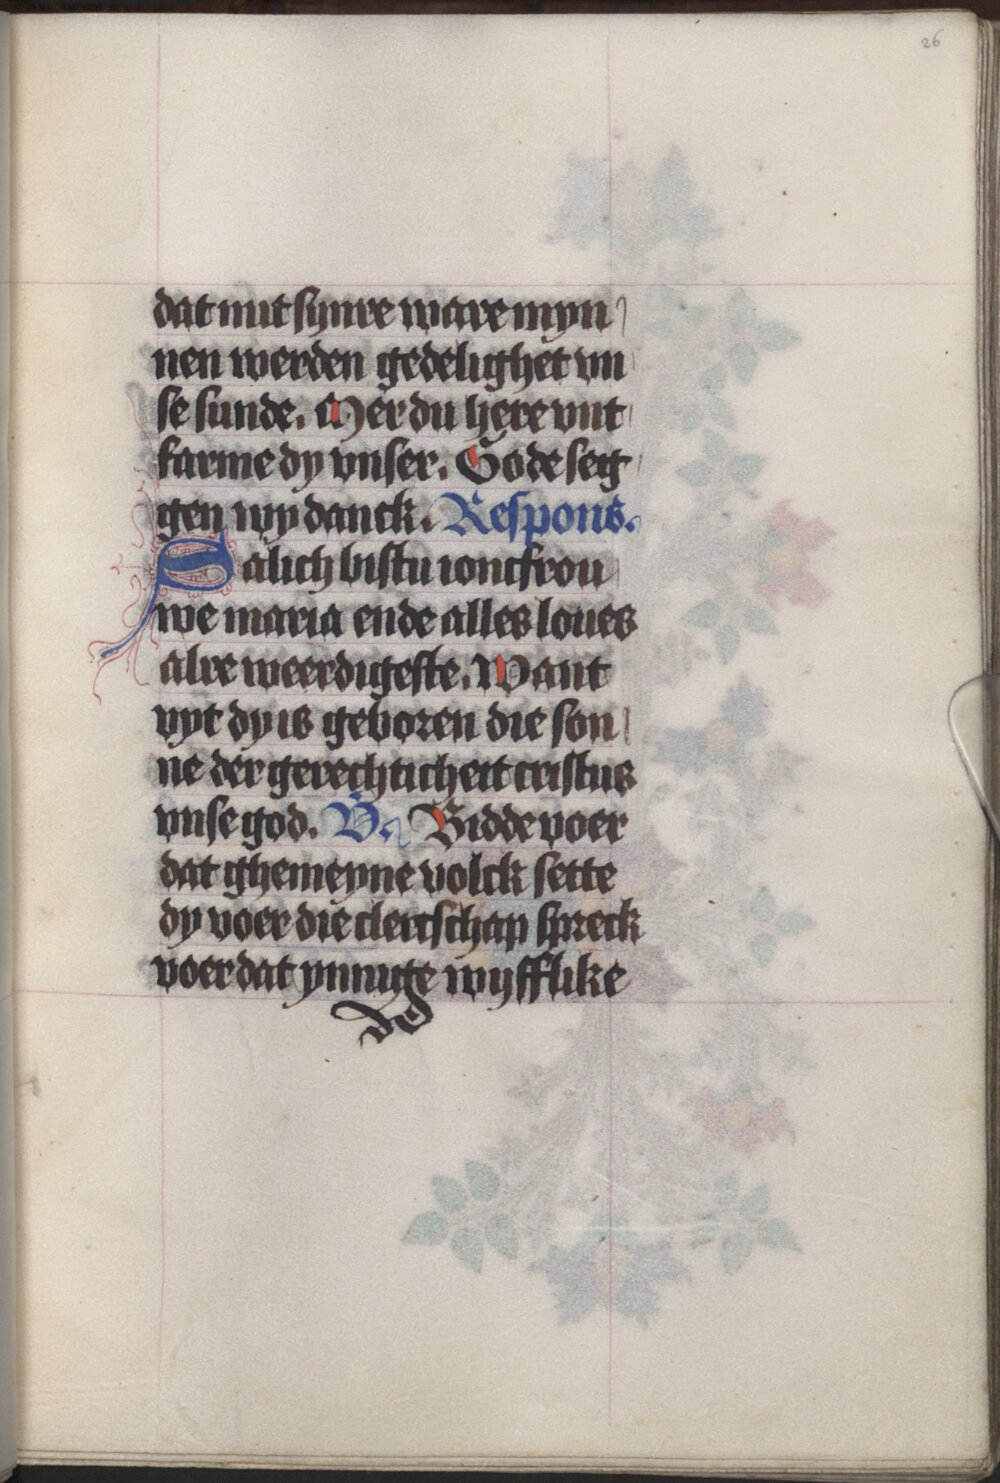 26
dat mit synre ware myn
nen werden gedelighet vn
se sunde. Mer du here vnt
farme dy vnser. Gode seg
gen wy danck. Respons.
Salich bistu ioncfrou
we maria ende alles loues
alre weerdigeste. Want
vyt dy is geboren die son
ne der gerechticheit cristus
vnse god. V. Bidde voer
dat ghemeyne volck sette
dy voer die clercschap spreck
voer dat ynnige wyfflike